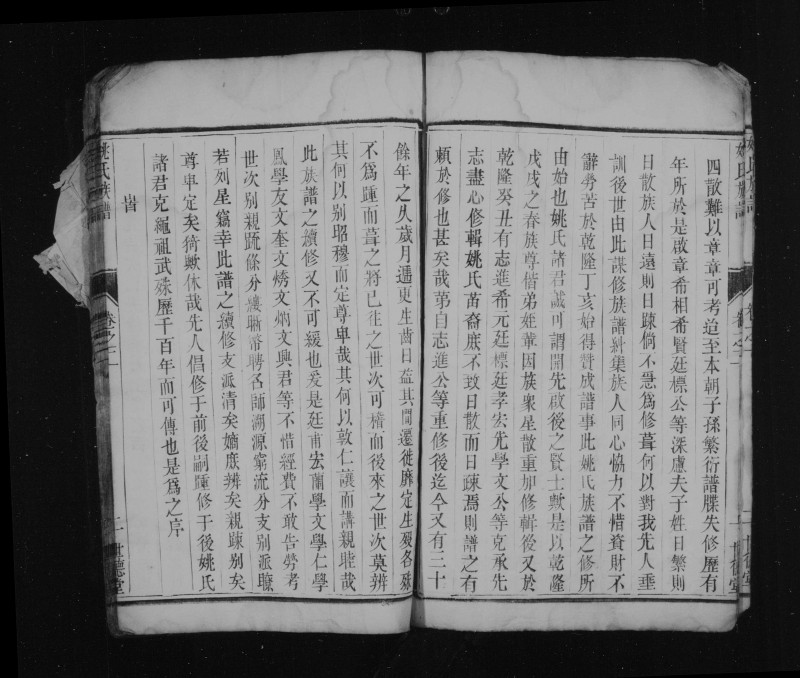 四散難以章章可考迨至本朝子孫繁衍譜牒失修歷有
年所於是啟章希相希賢廷標公等深慮夫子姓日繁則
日散族人日遠則日踈倘不急為修葺何以對我先人垂
訓後世由此謀修族譜糾集族人同心恊力不惜資財不
辭勞苦於乾隆丁亥始得贊成譜事此姚氏族譜之修所
由始也姚氏諸君誠可謂開先啟後之賢士歟是以乾隆
戊戌之春族尊偕弟姪輩因族衆星散重加修輯後又於
乾隆癸丑有志進希元廷標廷孝宏先學文公等克承先
志盡心修輯姚氏苗裔庶不致日散而日踈焉則譜之有
賴於修也甚矣哉第自志進公等重修後迄今又有三十
餘年之久歲月遞更生齒日益其間遷徙靡定生殁各殊
不為踵而葺之將已往之世次可稽而後來之世次莫辨
其何以别昭穆而定尊卑哉其何以敦仁讓而講親睦哉
此族譜之續修又不可緩也爰是廷甫宏蘭學文學仁學
鳳學友文奎文綉文炳文興君等不惜經費不敢告勞考
世次别親踈條分縷晰溍聘名師溯源窮流分支别派瞭
若列星竊幸此譜之續修支派清矣嫡庶辨矣親踈别矣
尊卑定矣猗歟休哉先人倡修于前後嗣踵修于後姚氏
諸君克繩祖武殊歷千百年而可傳也是為之序
旹
姚氏族譜
卷之一
二
世德堂